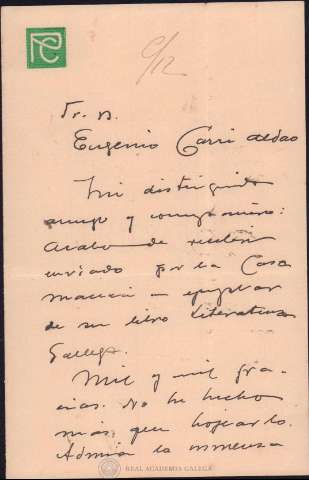 C/12
Sr. D.
Eugenio Carré Aldao
Mi distinguido
amigo y compañero:
Acabo de recibir
enviado por la Casa
Maucci un ejemplar
de su libro Literatura
Gallega.
Mil y mil gra-
cias. No he hecho
más que hojearlo.
Admiro la inmensa
REAL ACADEMIA GALEGA